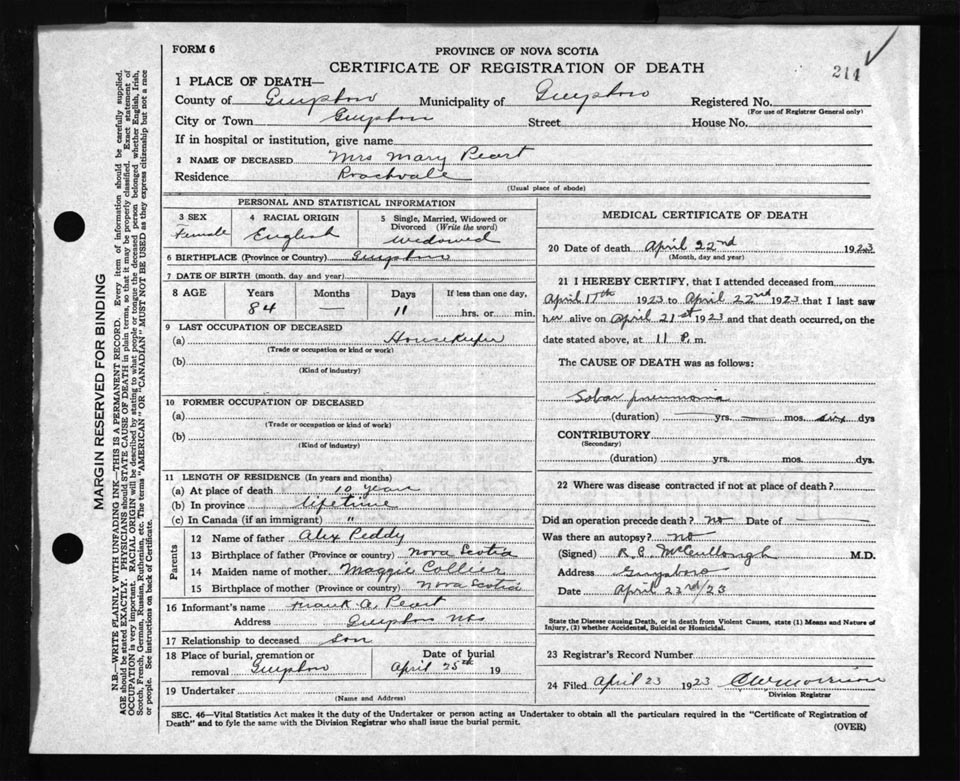 FORM 6
PROVINCE OF NOVA SCOTIA
CERTIFICATE OF REGISTRATION OF DEATH
214
1 PLACE OF DEATH—
County of Guysboro Municipality of Guysboro Registered No.
(For use of Registrar General only)
City or Town Guysboro Street House No.
If in hospital or institution, give name
2 NAME OF DECEASED Mrs Mary Peart
Residence Roachvale
(Usual place of abode)
PERSONAL AND STATISTICAL INFORMATION
3 SEX Female
4 RACIAL ORIGIN English
5 Single, Married, Widowed or Divorced (Write the word) widowed
6 BIRTHPLACE (Province or Country) Guysboro
7 DATE OF BIRTH (month, day and year)
8 AGE Years Months Days If less than one day,
84 — 11 hrs. or min.
9 LAST OCCUPATION OF DECEASED
(a) Housekeeper
(Trade or occupation or kind or work)
(b)
(Kind of industry)
10 FORMER OCCUPATION OF DECEASED
(a)
(Trade or occupation or kind of work)
(b)
(Kind of industry)
11 LENGTH OF RESIDENCE (In years and months)
(a) At place of death 10 years
(b) In province lifetime
(c) In Canada (if an immigrant) "
Parents
12 Name of father Alex Peddy
13 Birthplace of father (Province or country) Nova Scotia
14 Maiden name of mother Maggie Collier
15 Birthplace of mother (Province or country) Nova Scotia
16 Informant's name Frank A. Peart
Address Guysboro NS
17 Relationship to deceased Son
18 Place of burial, cremation or removal Guysboro
Date of burial
April 25th 19
19 Undertaker
(Name and Address)
MEDICAL CERTIFICATE OF DEATH
20 Date of death April 22nd 1923
(Month, day and year)
21 I HEREBY CERTIFY, that I attended deceased from
April 17th 1923 to April 22nd 1923 that I last saw
her alive on April 21st 1923 and that death occurred, on the
date stated above, at 11 P. m.
The CAUSE OF DEATH was as follows:
Lobar pneumonia
(duration) — yrs. — mos. six dys
CONTRIBUTORY
(Secondary)
(duration) yrs. mos. dys.
22 Where was disease contracted if not at place of death?
Did an operation precede death? no Date of —
Was there an autopsy? no
(Signed) McCullough M.D.
Address Guysboro
Date April 23rd/23
State the Disease causing Death, or in death from Violent Causes, state (1) Means and Nature of
Injury, (2) whether Accidental, Suicidal or Homicidal.
23 Registrar's Record Number
24 Filed April 23 1923 Morrison
Division Registrar
SEC. 46—Vital Statistics Act makes it the duty of the Undertaker or person acting as Undertaker to obtain all the particulars required in the "Certificate of Registration of
Death" and to fyle the same with the Division Registrar who shall issue the burial permit.
(OVER)
MARGIN RESERVED FOR BINDING
N.B.—WRITE PLAINLY WITH UNFADING INK—THIS IS A PERMANENT RECORD. Every item of information should be carefully supplied.
AGE should be stated EXACTLY. PHYSICIANS should STATE CAUSE OF DEATH in plain terms, so that it may be properly classified. Exact statement of
OCCUPATION is very important. RACIAL ORIGIN will be described by stating to what people or tongue the deceased person belonged whether English, Irish,
Scotch, French, German, Russian, Ruthenian, etc. The terms "AMERICAN" OR "CANADIAN" MUST NOT BE USED as they express citizenship but not a race
or people. See instructions on back of Certificate.